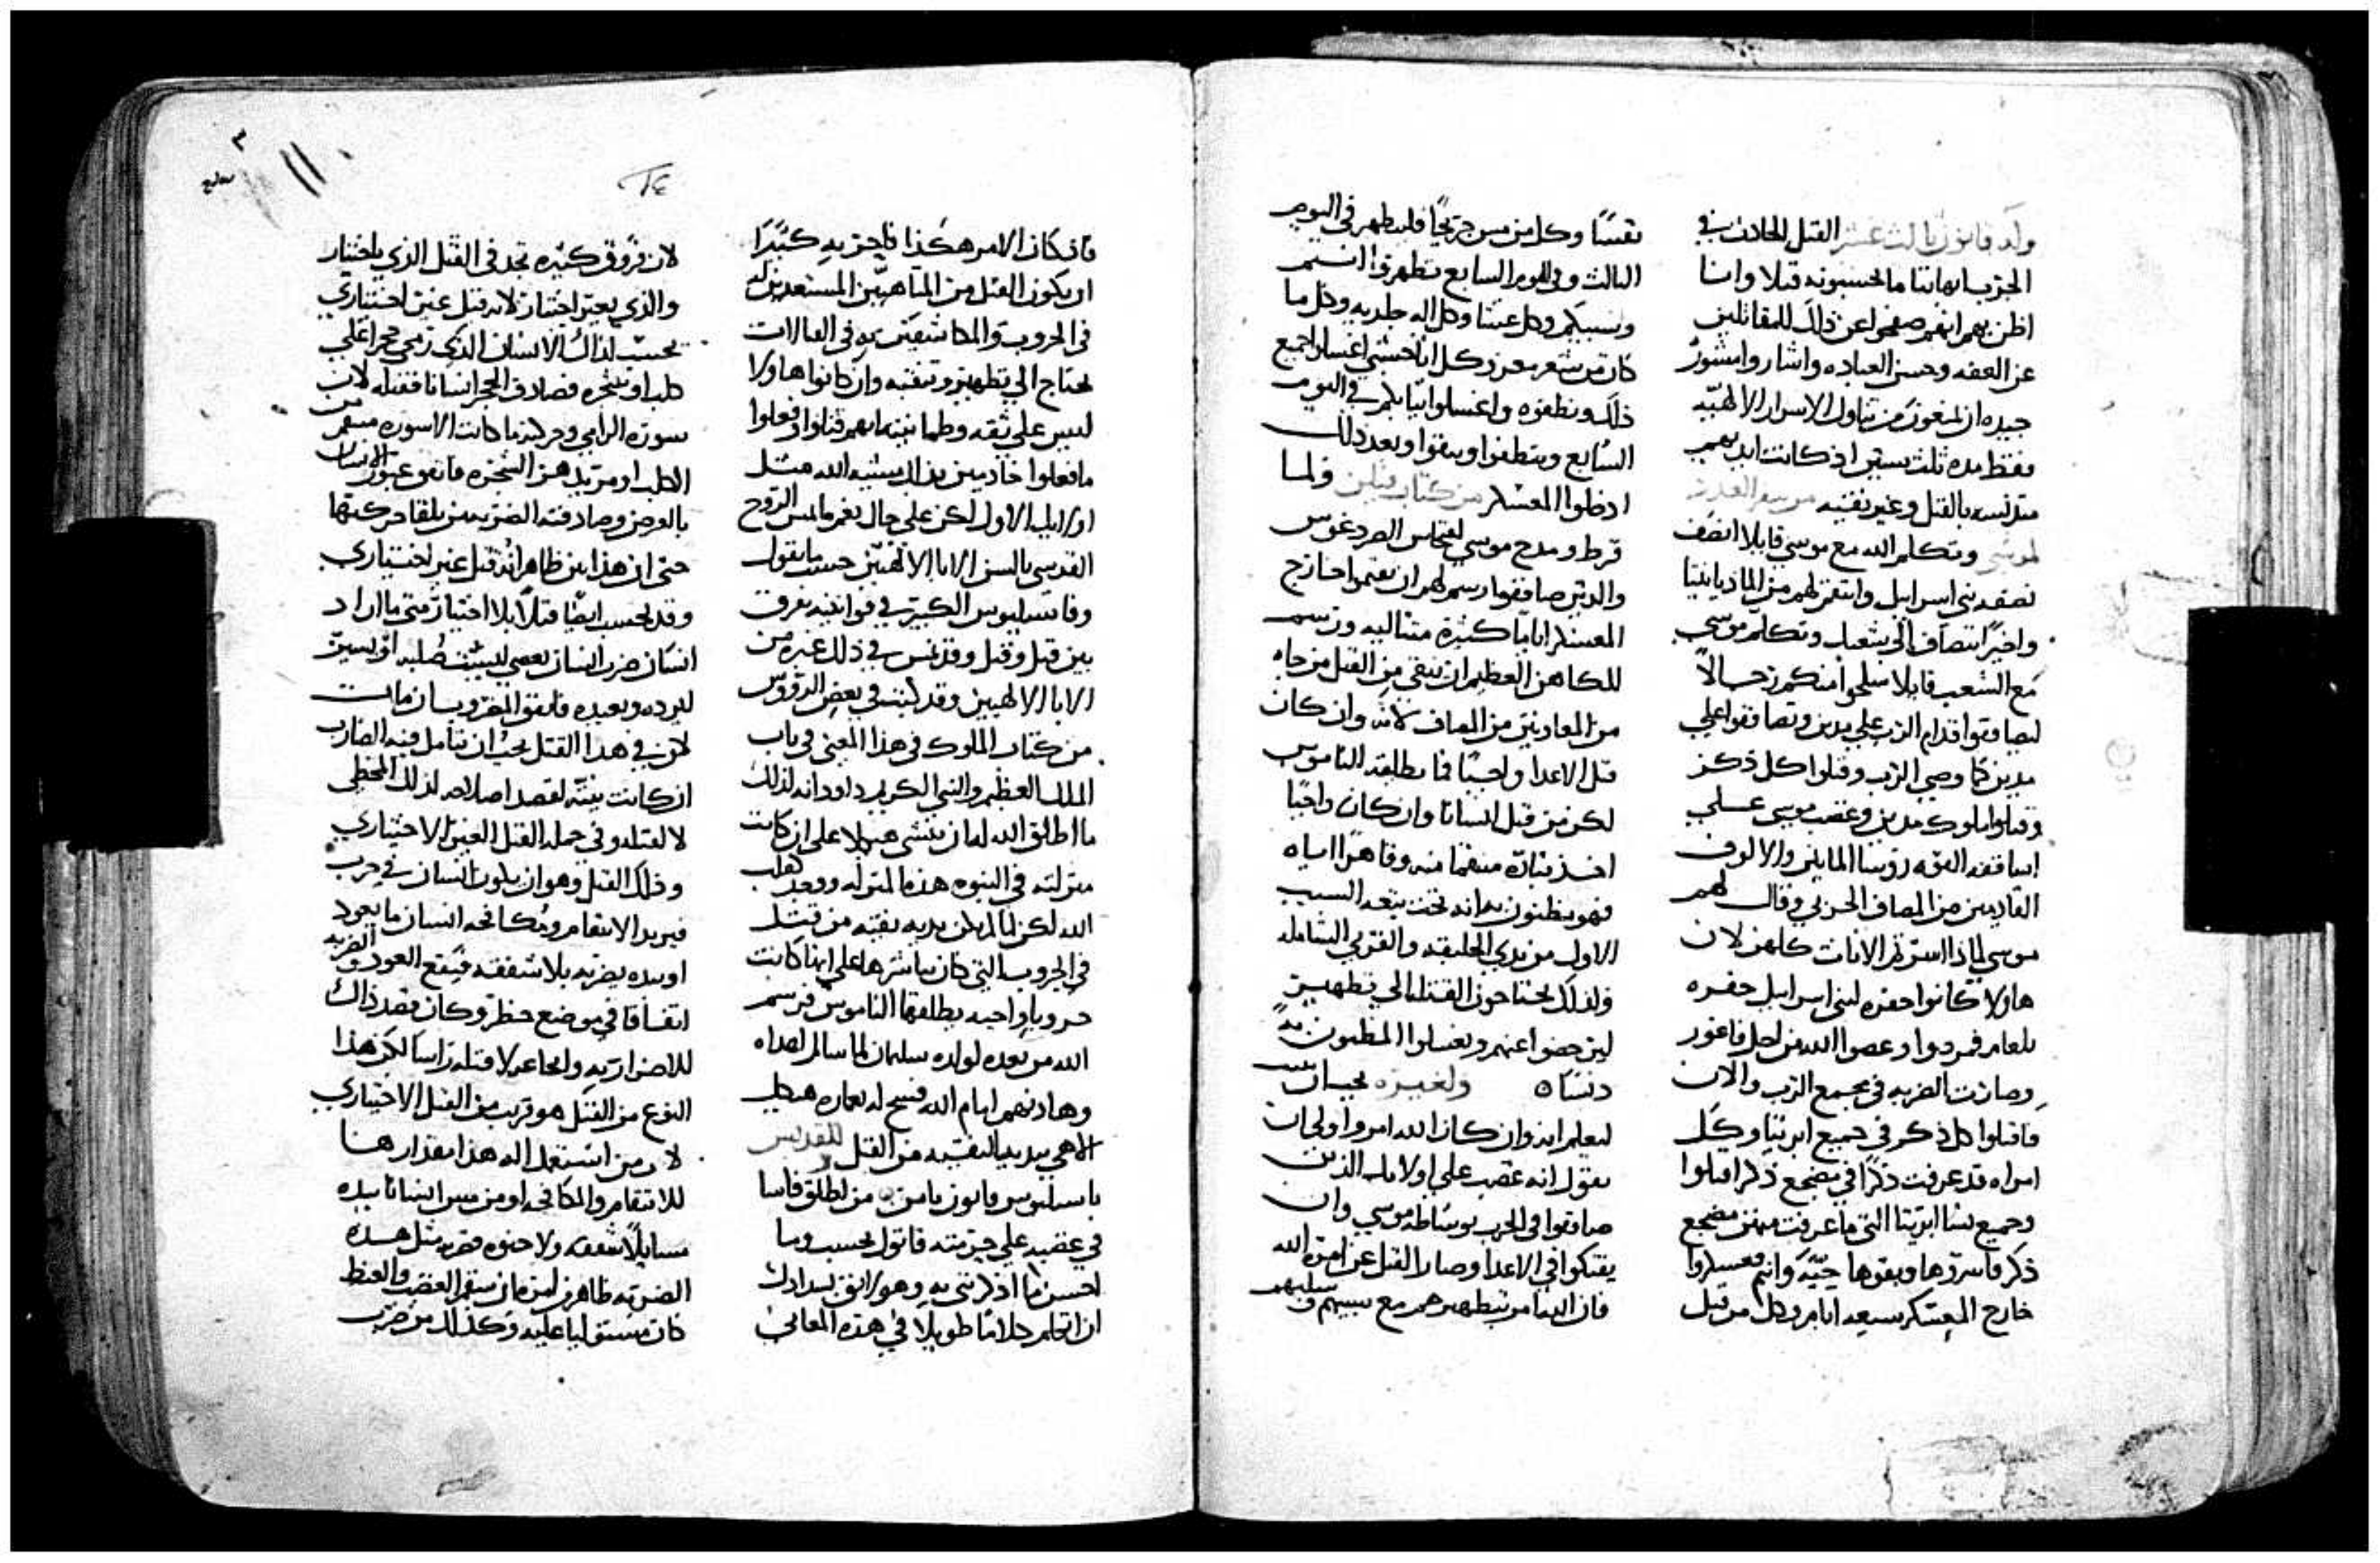 وله قانون ثالث عشر القتل الحادث في
الحزب ابهاتنا ما يحسبونه قتلا وانا
اظن بهم انهم صفحوا عن ذلك للمقاتلين
عن العفه وحسن العباده واشاروا مشورة
جيده ان يمنعون من تناول الاسرار الالهيه
فقط مده ثلث سنين اذ كانت ايديهم
متدنسه بالقتل وغير نقيه
لموسى وتكلم الله مع موسى قايلا انصف
نصفه بني اسراييل وانتقم لهم من الماديانيين
واخيرا تنصاف الى شعبك وتكلم موسى
مع الشعب قايلا سلحوا منكم رجالا
ليصافوا قدام الرب على مدين وتصافوا على
مدين كما وصى الرب وقتلوا كل ذكر
وقتلوا ملوك مدين وغضب موسى على
اساقفه القوه روسا المايين والالوف
القادمين من المصاف الحربي وقال لهم
موسى لماذا استرتم الاناث كلهن لان
هاولا كانوا حفره لبني اسراييل حفره
بلعام فمردوا وعصوا الله من اجل فاغور
وصارت الضربه في مجمع الرب والان
فاقتلوا كل ذكر في جميع ابريتا وكل
امراه قد عرفت ذكرا في مضجع ذكر اقتلوا
وجميع نسا ابريتا التي ما عرفت منهن مضجع
ذكر فاسروها وبقوها حيه وانتم فعسكروا
خارج المعسكر سبعه ايام وكل من قتل
نفسا وكل من مس جريحا فليطهر في اليوم
الثالث وفي اليوم السابع تطهروا انتم
وسبيكم وكل غشا وكل اله جلديه وكل ما
كان من شعر معز وكل انا خشبي اغسلوا جميع
ذلك ونظفوه واغسلوا ثيابكم في اليوم
السابع وتنظفوا وتنقوا وبعد ذلك
ادخلوا المعسكر من كتاب فيلن ولما
قرط ومدح موسى
والذين صافقوا رسم لهم ان يقيموا خارج
المعسكر اياما كثيرة متتاليه ورسم
للكاهن العظيم ان ينقي من القتل من جاه
من المعاونين من المصاف لانه وان كان
قتل الاعدا واجبا فما يطلقه الناموس
لكن من قتل انسانا وان كان واجبا
اخذ بثاره منتقما منه وقاهرا اياه
فهو يظنون به انه تحت تبعه السبب
الاول من بدي الخليقه والقربى الشامله
ولذلك يحتاجون القتله الى تطهير
ليرحضوا عنهم ويغسلوا المظنون به
دنسا ٥ ولغيره يجب ان
ليعلم انه وان كان الله امر واولى ان
يقول انه غضب على اولايك الذين
صافوا في الحرب بوساطه موسى وان
يفتكوا في الاعدا وصار القتل عن امر الله
فان الله امر بتطهيرهم مع سبيهم وسلبهم
٢٤
فان كان الامر هكذا فاحزر به كثيرا
ان يكون القتل من المتاهبين المستعدين له
في الحروب والمكاشفين به في القتالات
يحتاج الى تطهير وتنقيه وان كانوا هاولا
ليس على ثقه وطمانينه انهم قتلوا وفعلوا
ما فعلوا خادمين بذلك مشيه الله مثل
اولايك الاول لكن على حال بفم مالمس الروح
القدس بالسن الابا الالهيين حسب ما يقول
وفاسيليوس الكبير في قوانينه يفرق
بين قتل وقتل وفرنس في ذلك غيره من
الابا الالهيين وقد كتبت في بعض الرؤوس
من كتاب الملوك في هذا المعنى في باب
الملك العظيم والنبي الكريم داود انه لذلك
ما اطلق الله له ان ينشي هيكلا على ان كانت
منزلته في النبوه هذه المنزله ووجد كقلب
الله لكن لما لم يكن يديه نقيه من قتل
في الحروب التي كان يباشرها على انها كانت
حروبا واجبه يطلقها الناموس فرسم
الله من بعده لولده سليمان لما سالم اعداه
وهادنهم ايام الله فسح له بعماره هيكل
الاهي بيديه النقيه من القتل للقديس
باسيليوس قانون ثامن من يطلق فاسا
في غضبه على حرمته قاتول يحسب وما
احسن ما اذكرتني به وهو لايق بسدادك
ان اتكلم كلاما طويلا في هذه المعاني
١١
لان فروق كثيره تجد في القتل الذي باختيار
والذي بغير اختيار لانه قتل غير اختياري
يحسب لذاك الانسان الذي رمى حجرا على
كلب او شجره فصادف الحجر انسانا فقتله لان
سورة الرامي وحركته ما كانت الا سوره منتقم من
الكلب او مريد هز الشجره فاتفق عبور الانسان
بالعرض وصادفته الضربه من تلقا حركتها
حتى ان هذا بين ظاهر انه قتل غير اختياري
وقد يحسب ايضا قتلا بلا اختيار متى ما اراد
انسان ضرب انسان بعصي ليست صلبه او بسير
ليرده ويعيده فاتفق المضروب ان مات
لان في هذا القتل يجب ان نتامل فيه الضارب
ان كانت نيته لقصد اصلاحه لذلك المخطي
لا لقتله وفي جمله القتل الغير الاختياري
وذلك القتل وهو ان يكون انسان في حرب
فيريد الانتقام ومكافحه انسان ما بعود
او بيده يضربه بلا شفقه فيقع العود والضربه
اتفاقا في موضع خطر وكان قصد ذاك
للاضرار به وايجاعه لا قتله راسا لكن هذا
النوع من القتل هو قريب من القتل الاختياري
لان من استعمل اله هذا مقدارها
للانتقام والمكافحه او من مس انسانا بيده
مسا بلا شفقه ولا حنوه فضربه مثل هذه
الضربه ظاهر ان من فان سقم الغضب والغيظ
كان مستوليا عليه وكذلك من ضرب